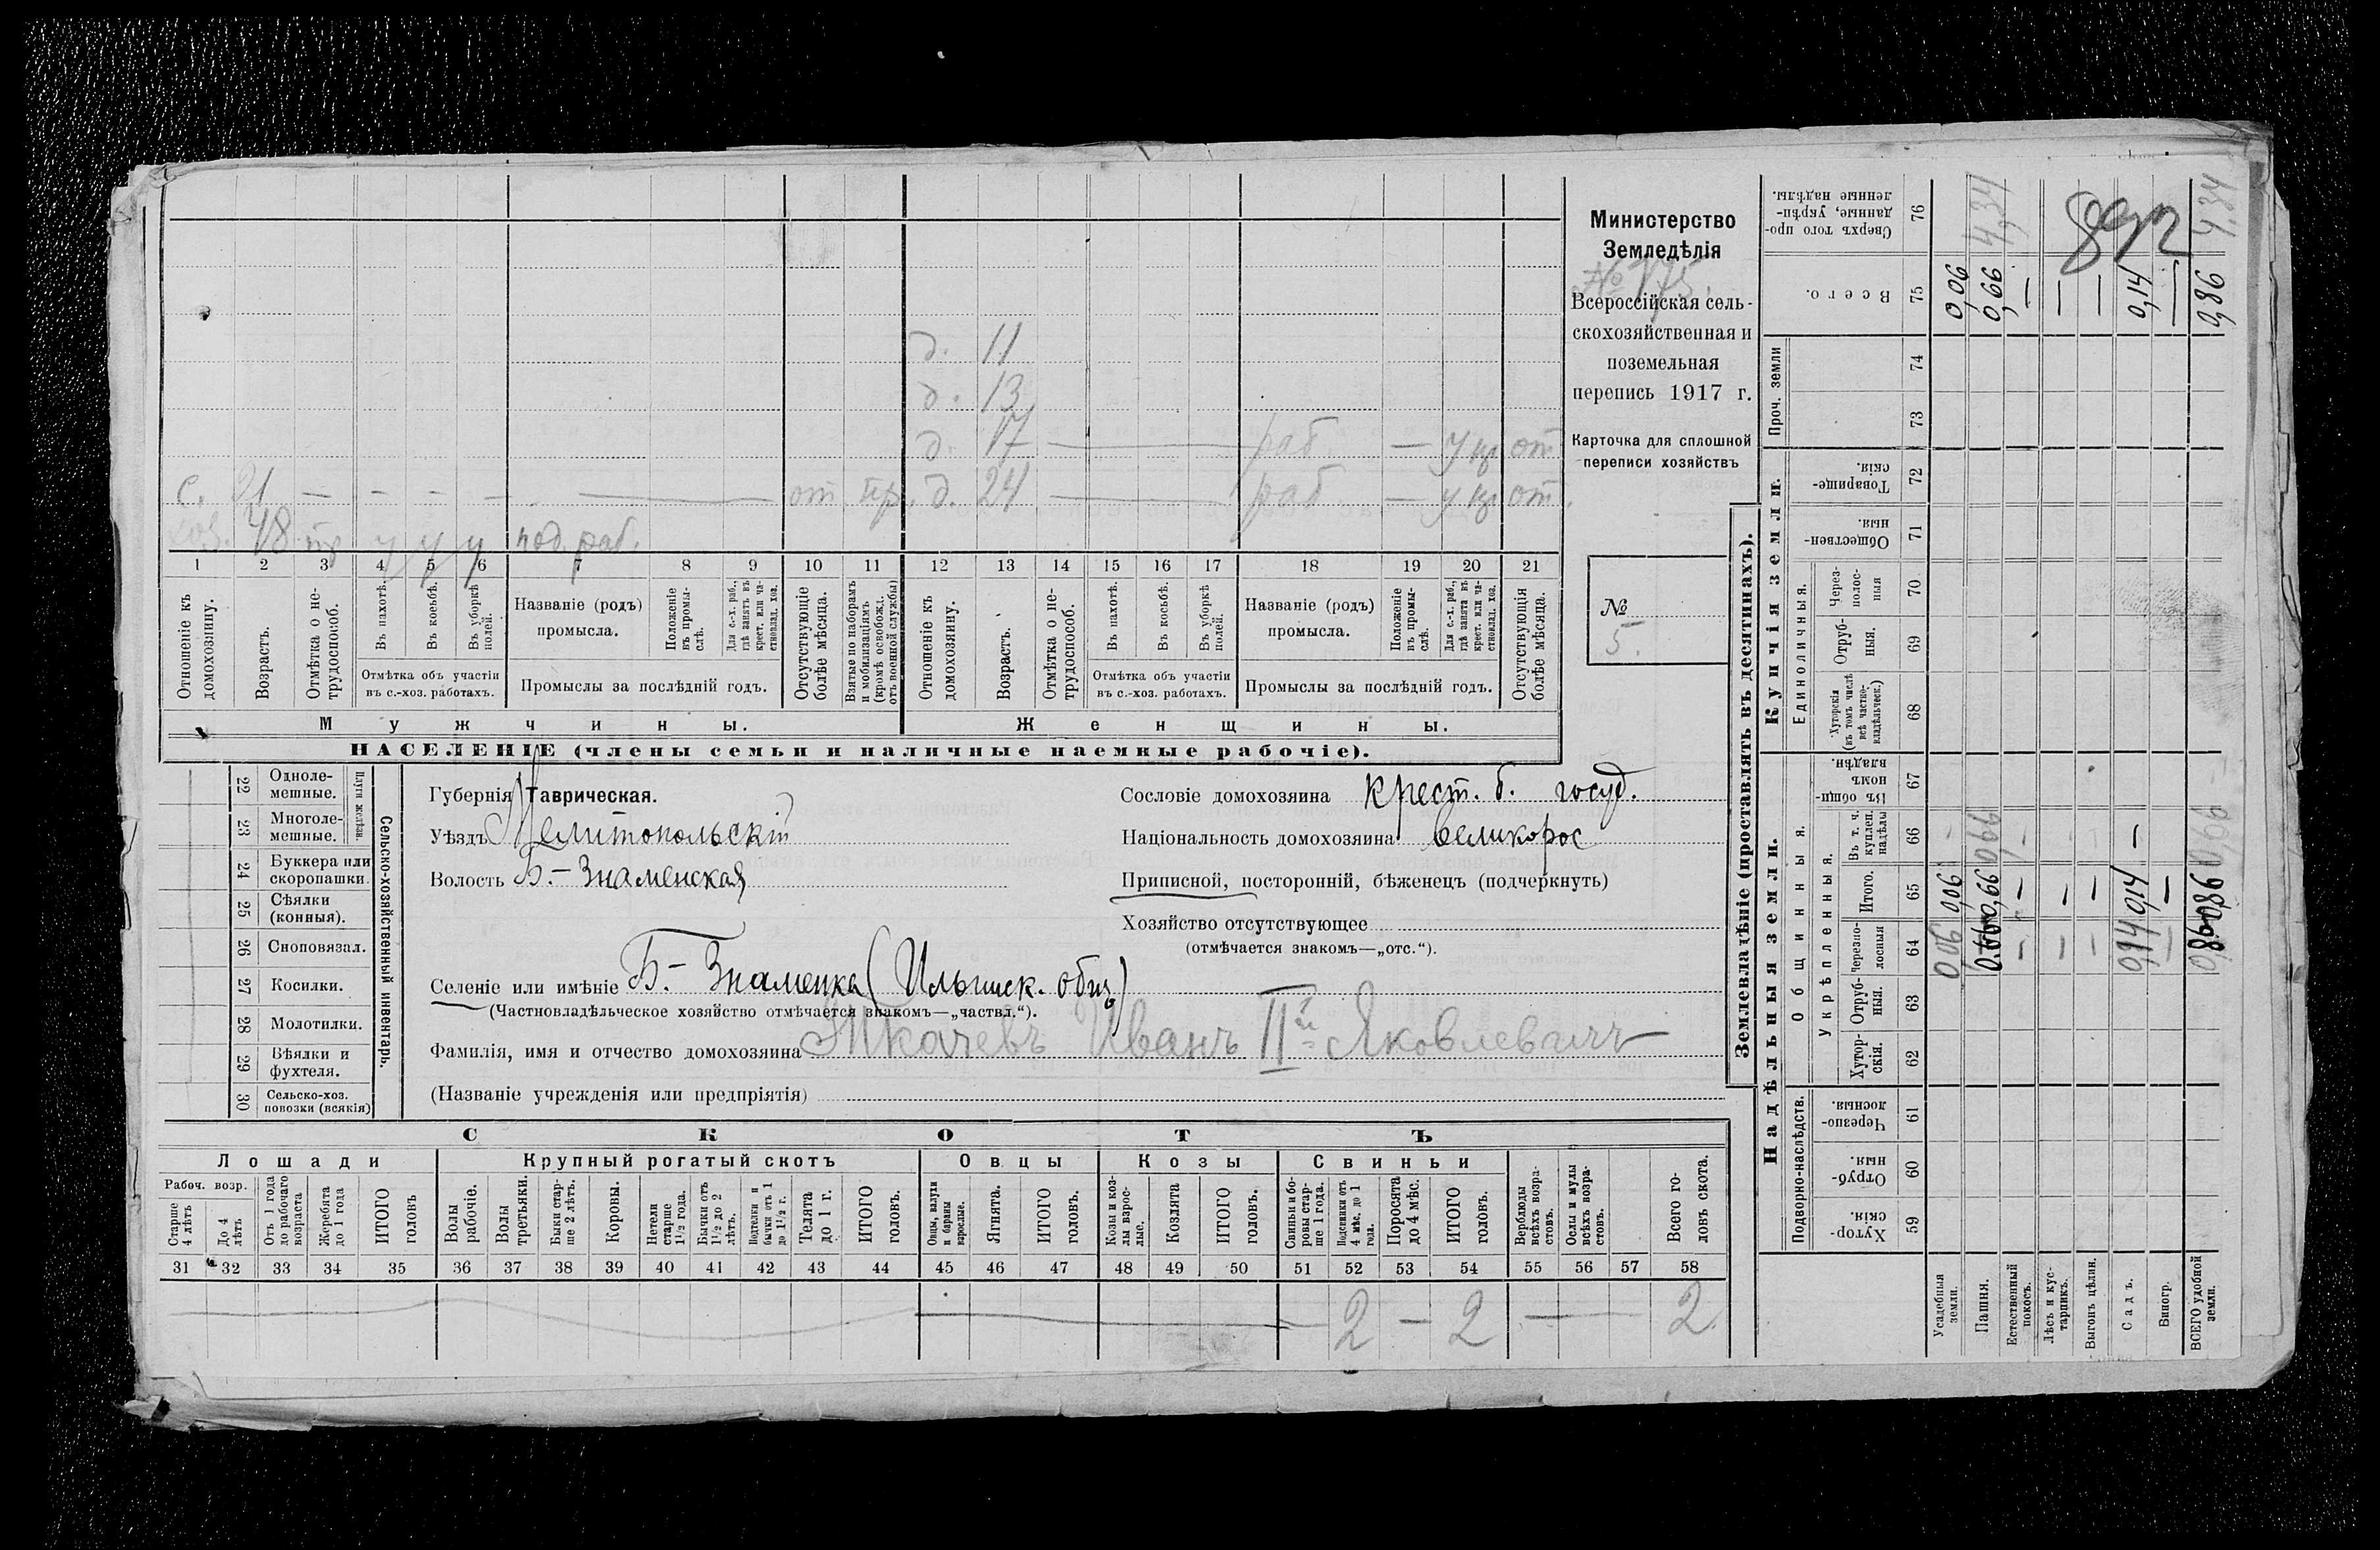 Министерство
Земледѣлія
№ 175.
Всероссійская сель-
скохозяйственная и
поземельная
перепись 1917 г.
Карточка для сплошной
переписи хозяйствъ
№
5.
д. 11
д. 13
д. 17 — раб. — у кр от
с. 21 — — — — — от. пр. д. 24 — раб — у кр от.
хоз. 48 пр у у у под. раб.
1 2 3 4 5 6 7 8 9 10 11 12 13 14 15 16 17 18 19 20 21
Отношеніе къ домохозяину.
Возрастъ.
Отмѣтка о не-трудоспособ.
Въ пахотѣ.
Въ косьбѣ.
Въ уборкѣ полей.
Отмѣтка объ участіи въ с.-хоз. работахъ.
Названіе (родъ) промысла.
Положеніе въ промы-слѣ.
Для с.-х. раб., гдѣ занятъ въ крест. или ча-стновлад. хоз.
Промыслы за послѣдній годъ.
Отсутствующіе болѣе мѣсяца.
Взятые по наборамъ и мобилизаціямъ (кромѣ освобожд. отъ военной службы)
Отношеніе къ домохозяину.
Возрастъ.
Отмѣтка о не-трудоспособ.
Въ пахотѣ.
Въ косьбѣ.
Въ уборкѣ полей.
Отмѣтка объ участіи въ с.-хоз. работахъ.
Названіе (родъ) промысла.
Положеніе въ промы-слѣ.
Для с.-х. раб., гдѣ занята въ крест. или ча-стновлад. хоз.
Промыслы за послѣдній годъ.
Отсутствующія болѣе мѣсяца.
Мужчины. Женщины.
НАСЕЛЕНІЕ (члены семьи и наличные наемные рабочіе).
22 Одноле-мешные.
23 Многоле-мешные.
Плуги желѣзн.
24 Буккера или скоропашки.
25 Сѣялки (конныя).
26 Сноповязал.
27 Косилки.
28 Молотилки.
29 Вѣялки и фухтеля.
30 Сельско-хоз. повозки (всякія)
Сельско-хозяйственный инвентарь.
Губернія Таврическая.
Уѣздъ Мелитопольскій
Волость Б.-Знаменская
Сословіе домохозяина крест. б. госуд.
Національность домохозяина великорос
Приписной, посторонній, бѣженецъ (подчеркнуть)
Хозяйство отсутствующее
(отмѣчается знакомъ—„отс.“).
Селеніе или имѣніе Б.-Знаменка (Ильинск. общ)
(Частновладѣльческое хозяйство отмѣчается знакомъ—„частвл.“).
Фамилія, имя и отчество домохозяина Ткачевъ Иванъ IIй Яковлевичъ
(Названіе учрежденія или предпріятія)
СКОТЪ
Лошади Крупный рогатый скотъ Овцы Козы Свиньи
Рабоч. возр.
Старше 4 лѣтъ
До 4 лѣтъ
Отъ 1 года до рабочаго возраста
Жеребята до 1 года
ИТОГО головъ
Волы рабочіе.
Волы третьяки.
Быки стар-ше 2 лѣтъ.
Коровы.
Нетели старше 1½ года.
Бычки отъ 1½ до 2 лѣтъ.
Нетелки и бычки отъ 1 до 1½ г.
Телята до 1 г.
ИТОГО головъ.
Овцы, валухи и бараны взрослые.
Ягнята.
ИТОГО головъ.
Козы и коз-лы взрос-лые.
Козлята
ИТОГО головъ.
Свиньи и бо-ровы стар-ше 1 года.
Подсвинки отъ 4 мѣс. до 1 года.
Поросята до 4 мѣс.
ИТОГО головъ.
Верблюды всѣхъ возра-стовъ.
Ослы и мулы всѣхъ возра-стовъ.
Всего го-ловъ скота.
31 32 33 34 35 36 37 38 39 40 41 42 43 44 45 46 47 48 49 50 51 52 53 54 55 56 57 58
2 — 2 — 2
Землевладѣніе (проставлять въ десятинахъ).
Надѣльныя земли. Купчія земли. Проч. земли
Подворно-наслѣдств.
Общинныя.
Укрѣпленныя.
Единоличныя.
Хутор-скія. 59
Отруб-ныя. 60
Черезпо-лосныя. 61
Хутор-скія. 62
Отруб-ныя. 63
Черезпо-лосныя 64
Итого. 65
Въ т. ч. куплен. надѣлы 66
Въ общи-номъ владѣн. 67
Хуторскія (въ томъ числѣ всѣ частно-владѣльческ.) 68
Отруб-ныя. 69
Через-полос-ныя 70
Обществен-ныя. 71
Товарище-скія. 72
73
74
Всего. 75
Сверхъ того про-данные, укрѣп-ленные надѣлы. 76
Усадебныя земли. 0,06 0,06 — 0,06
Пашня. 0,66 0,66 0,66 0,66 4,34
Естественный покосъ. — — — —
Лѣсъ и кус-тарникъ. — — — —
Выгонъ цѣлин. — — — —
Садъ. 0,14 0,14 — 0,14
Виногр. — — —
ВСЕГО удобной земли. 0,86 0,86 0,66 0,86 4,34